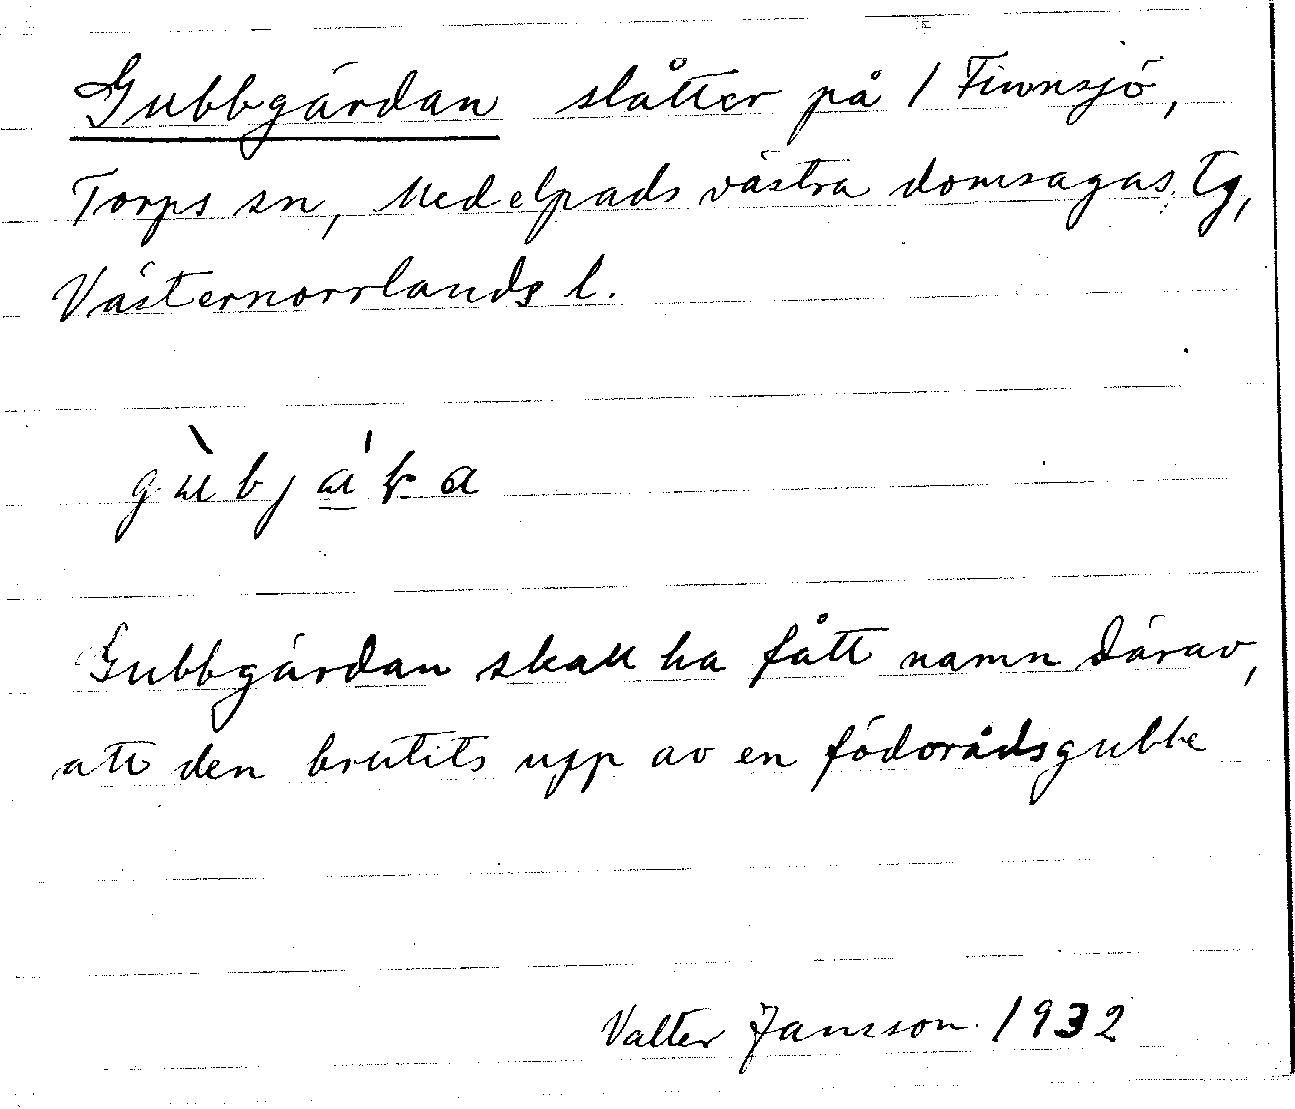 Gubbgärdan slåtter på 1 Finnsjö,
Torps sn, Medelpads västra domsagas tg,
Västernorrlands l.
Gubbgärdan skall ha fått namn därav,
att den brutits upp av en födorådsgubbe
Valter Jansson 1932